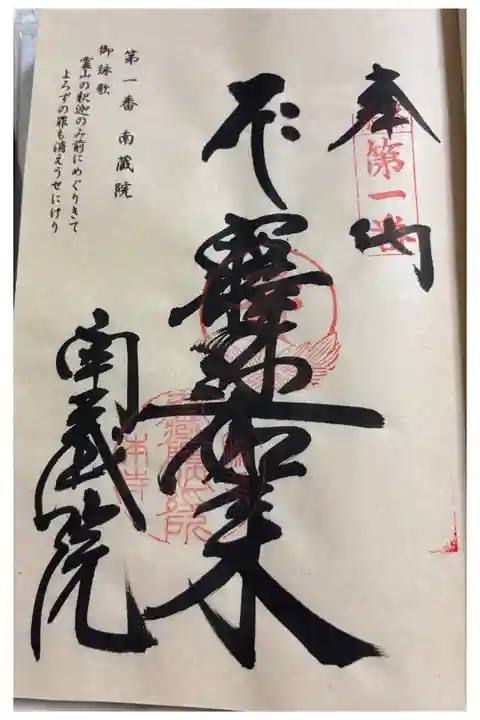 奉納
第一番
釈迦如来
南蔵院
本寺
第一番 南蔵院
御詠歌
霊山の釈迦のみ前にめぐりきて
よろずの罪も消えうせにけり